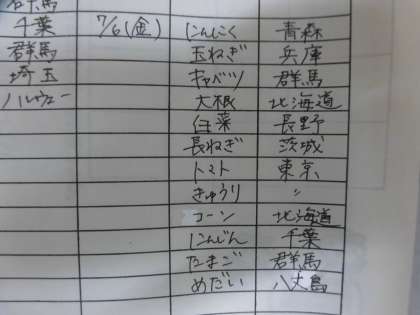 群馬
千葉 7/6(金) にんにく 青森
群馬 玉ねぎ 兵庫
埼玉 キャベツ 群馬
ノルウェー 大根 北海道
白菜 長野
長ねぎ 茨城
トマト 東京
きゅうり 〃
コーン 北海道
にんじん 千葉
たまご 群馬
めだい 八丈島